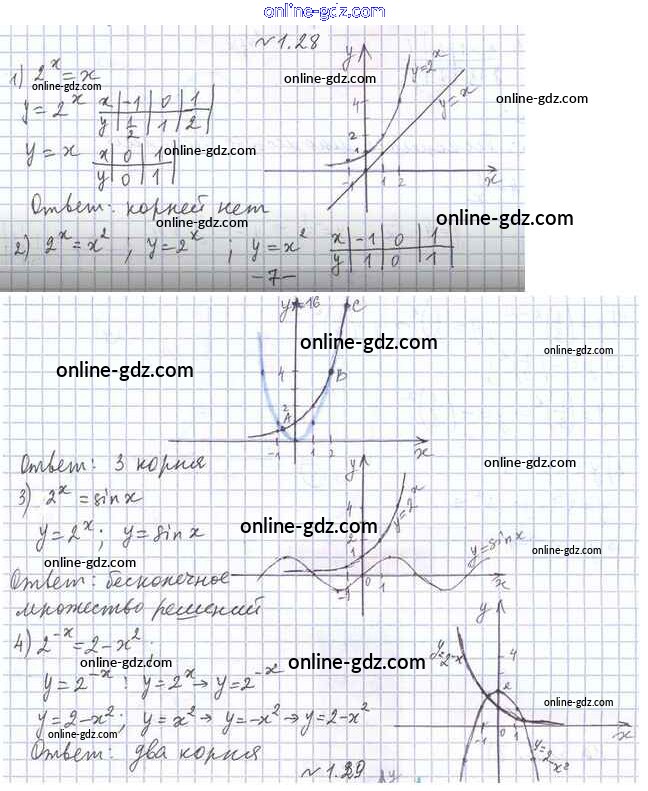 online-gdz.com
№1.28
1) 2^x = x
online-gdz.com
y = 2^x x | -1 | 0 | 1 |
y | 1/2 | 1 | 2 |
y = x x | 0 | 1 | online-gdz.com
y | 0 | 1 |
y
y=2^x
online-gdz.com
y=x
online-gdz.com
4
2
1
-1 1 2 x
Ответ: корней нет
online-gdz.com
online-gdz.com
2) 2^x = x^2 ; y = 2^x ; y = x^2 x | -1 | 0 | 1 |
y | 1 | 0 | 1 |
online-gdz.com
-7-
y=16 C
online-gdz.com
online-gdz.com
online-gdz.com
4 B
2
A
-1 1 2 x
Ответ: 3 корня
online-gdz.com
3) 2^x = sin x
y
4
y=2^x
2
1
y = 2^x ; y = sin x
online-gdz.com
y=sin x
online-gdz.com
online-gdz.com
Ответ: бесконечное
-1 0 1 x
множество решений
online-gdz.com
4) 2^-x = 2 - x^2
online-gdz.com
online-gdz.com
y = 2^-x : y = 2^x → y = 2^-x
y = 2 - x^2 ; y = x^2 → y = -x^2 → y = 2 - x^2
online-gdz.com
Ответ: два корня
y
4
2
online-gdz.com
-1 1 x
y=2-x^2
online-gdz.com
№1.29